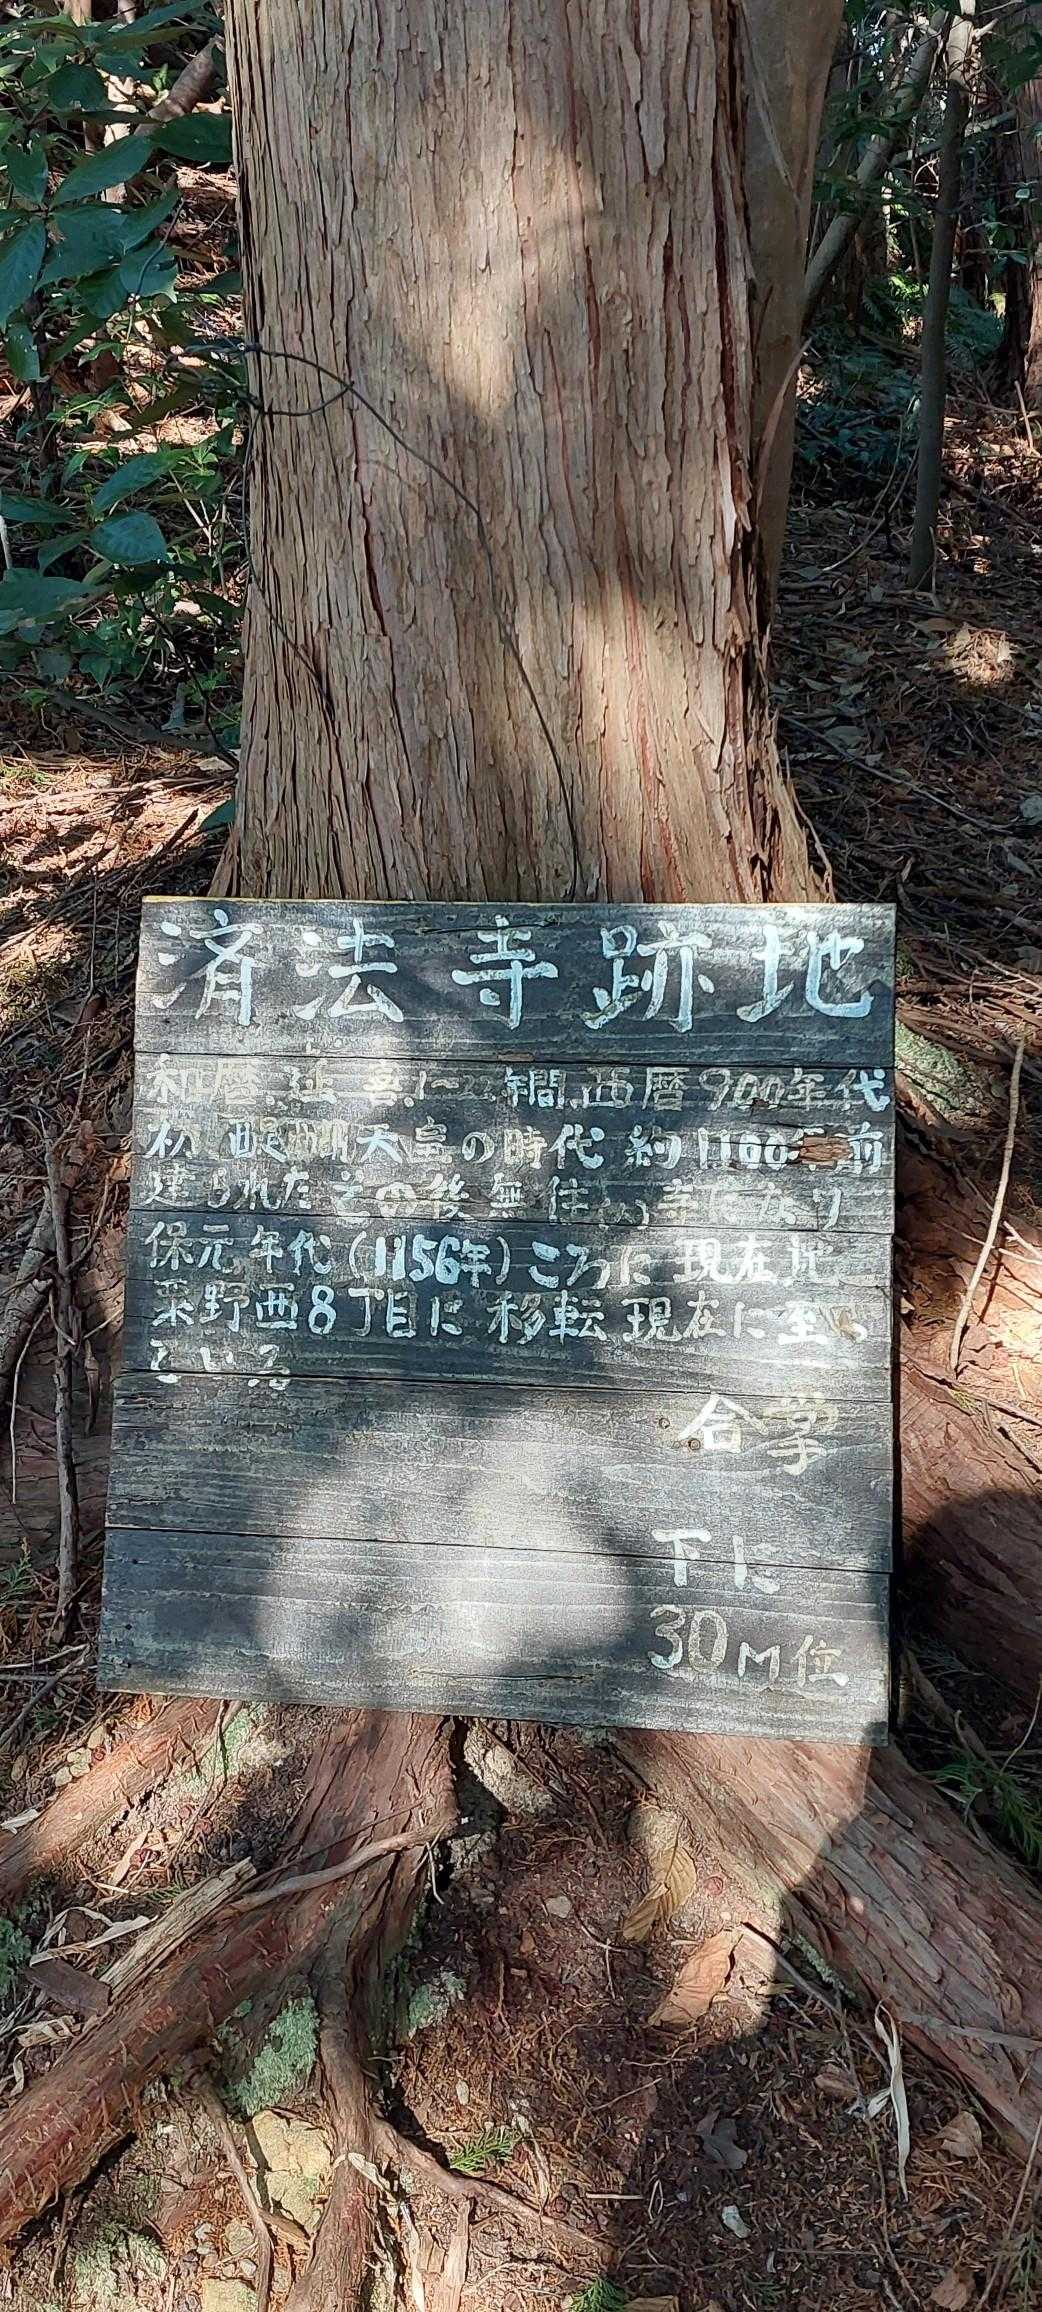 済法寺跡地
和暦、延喜、1〜22年間、西暦900年代
初 醍醐天皇の時代 約1100年前
建られた その後無住の寺になり
保元年代(1156年)ころに 現在地
粟野西8丁目に 移転 現在に至っ
ている
合掌
下に
30M位